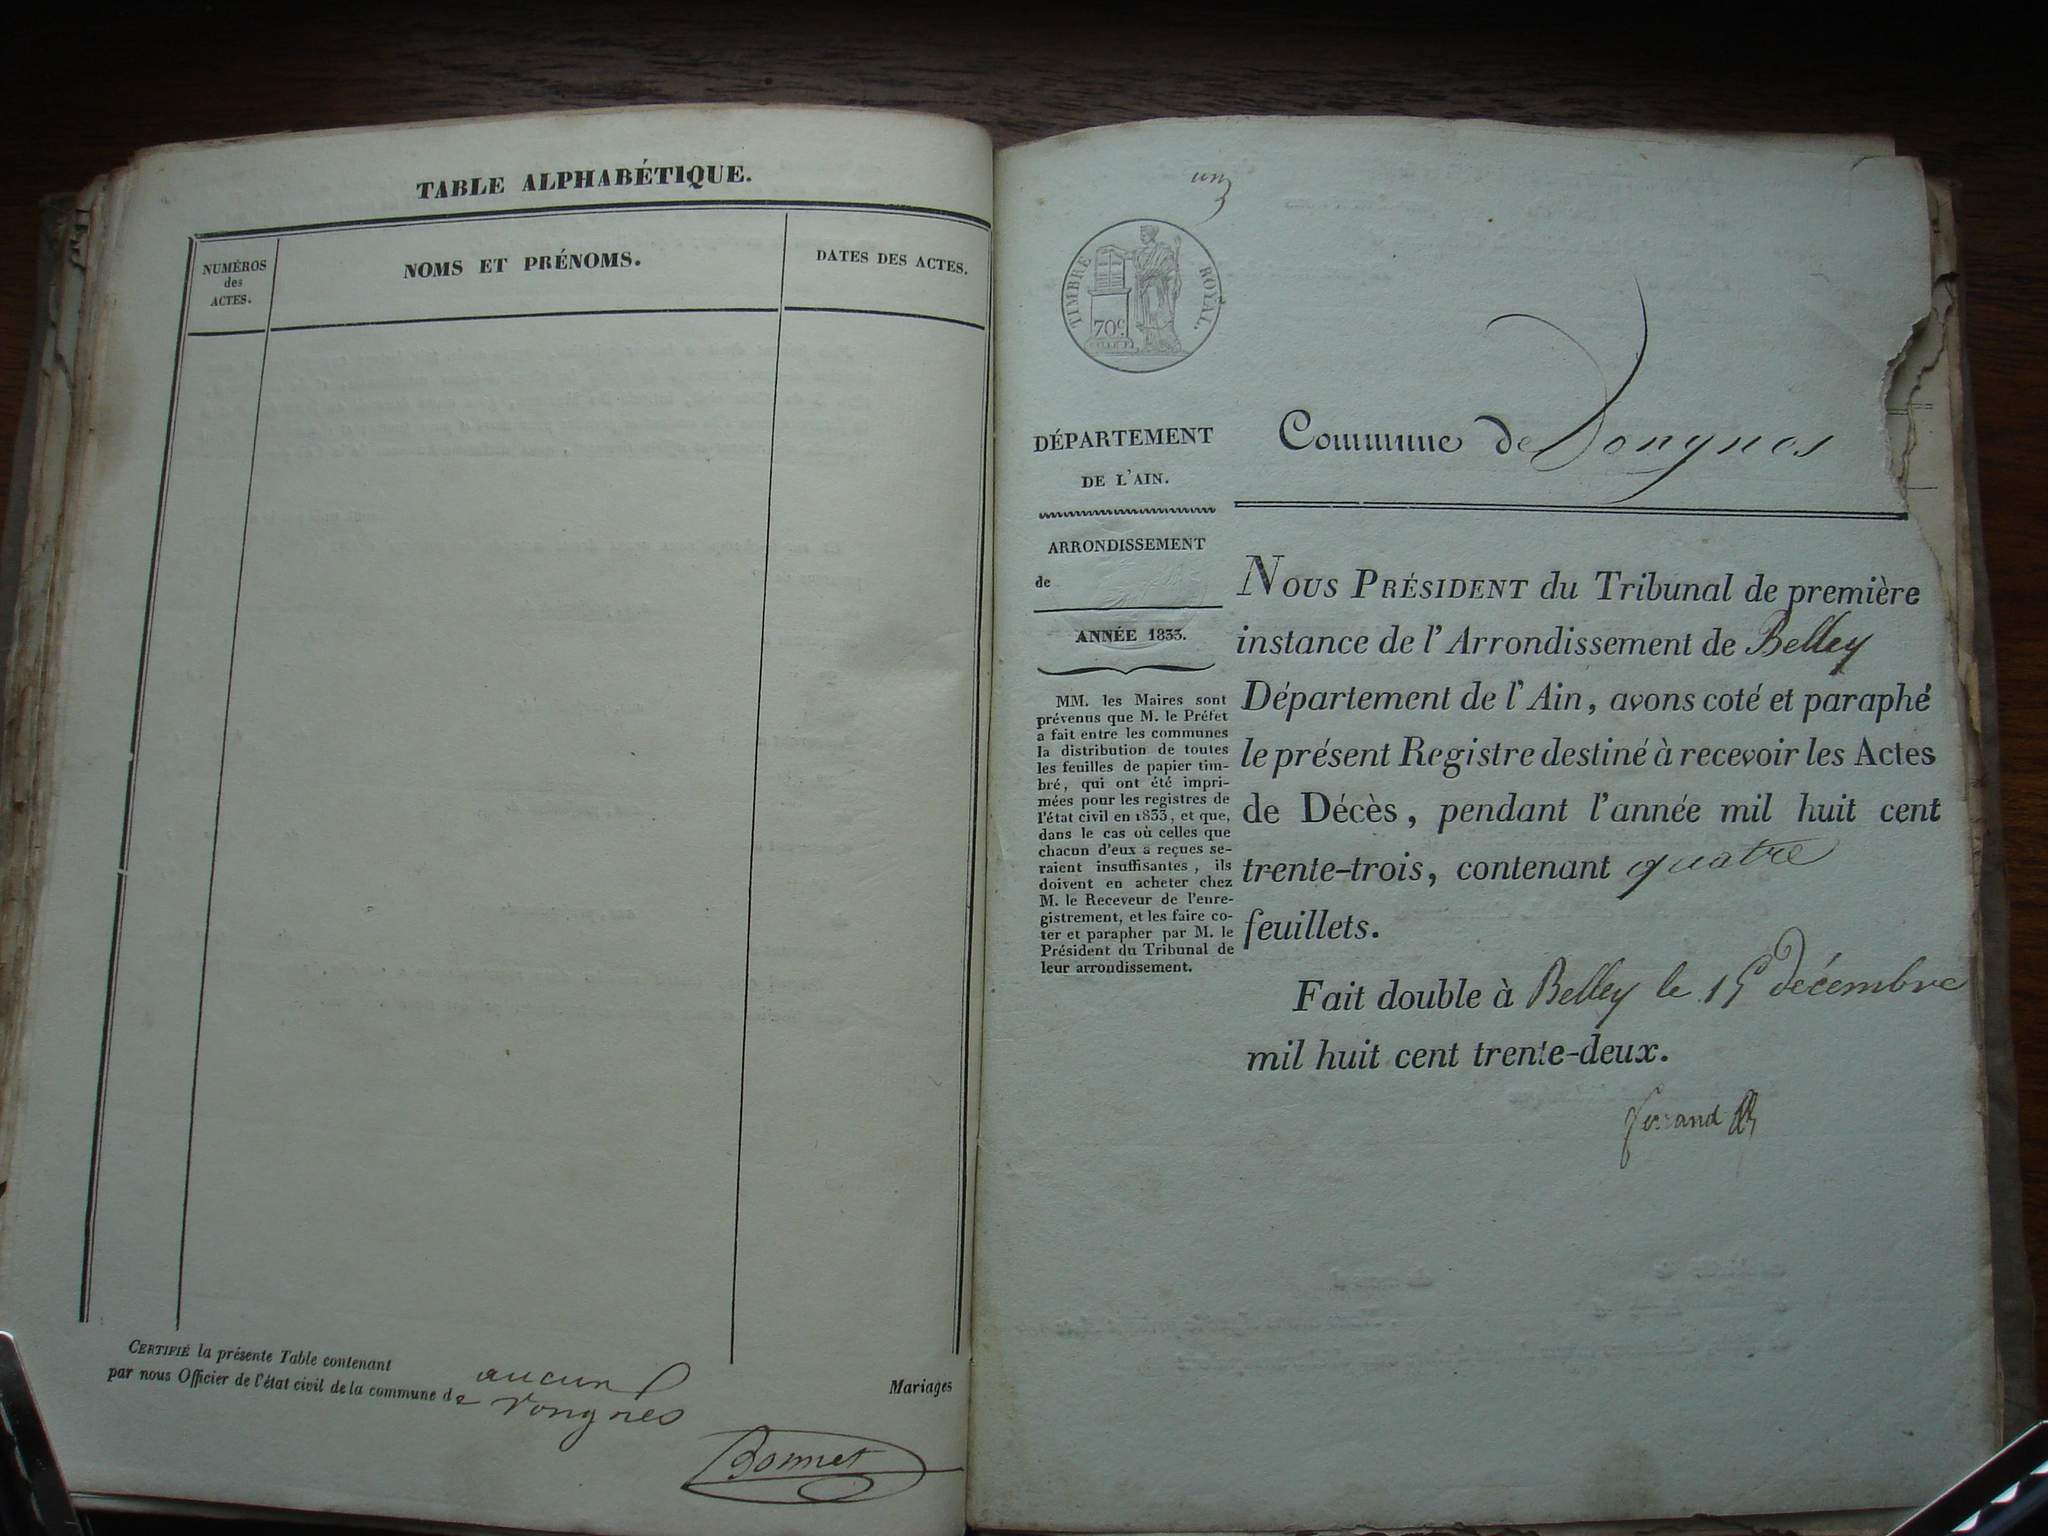 TABLE ALPHABÉTIQUE.
NUMÉROS
des
ACTES.
NOMS ET PRÉNOMS.
DATES DES ACTES.
CERTIFIÉ la présente Table contenant aucun Mariages
par nous Officier de l'état civil de la commune de
Bonnet
un
TIMBRE ROYAL.
70 c.
DÉPARTEMENT
DE L'AIN.
ARRONDISSEMENT
de
ANNÉE 1833.
MM. les Maires sont
prévenus que M. le Préfet
a fait entre les communes
la distribution de toutes
les feuilles de papier tim-
bré, qui ont été impri-
mées pour les registres de
l'état civil en 1833, et que,
dans le cas où celles que
chacun d'eux a reçues se-
raient insuffisantes, ils
doivent en acheter chez
M. le Receveur de l'enre-
gistrement, et les faire co-
ter et parapher par M. le
Président du Tribunal de
leur arrondissement.
Commune de Vongnes
NOUS PRÉSIDENT du Tribunal de première
instance de l'Arrondissement de Belley
Département de l'Ain, avons coté et paraphé
le présent Registre destiné à recevoir les Actes
de Décès, pendant l'année mil huit cent
trente-trois, contenant quatre
feuillets.
Fait double à Belley le 15 décembre
mil huit cent trente-deux.